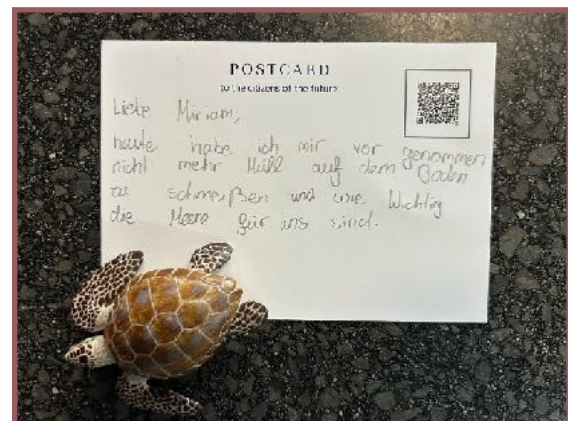 POSTCARD
to the citizens of the future
Liebe Miriam,
heute habe ich mir vor genommen
nicht mehr Müll auf dem Boden
zu schmeißen und wie Wichtig
die Meere für uns sind.